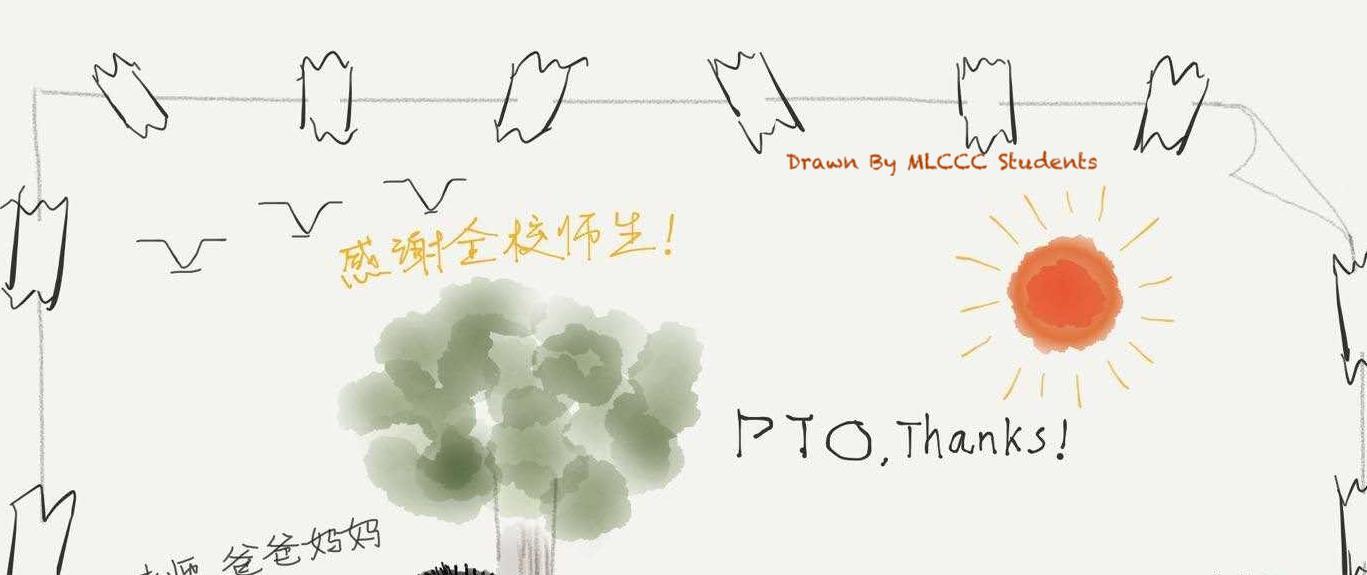 Drawn By MLCCC Students
感谢全校师生!
PTO, Thanks!
老师 爸爸妈妈